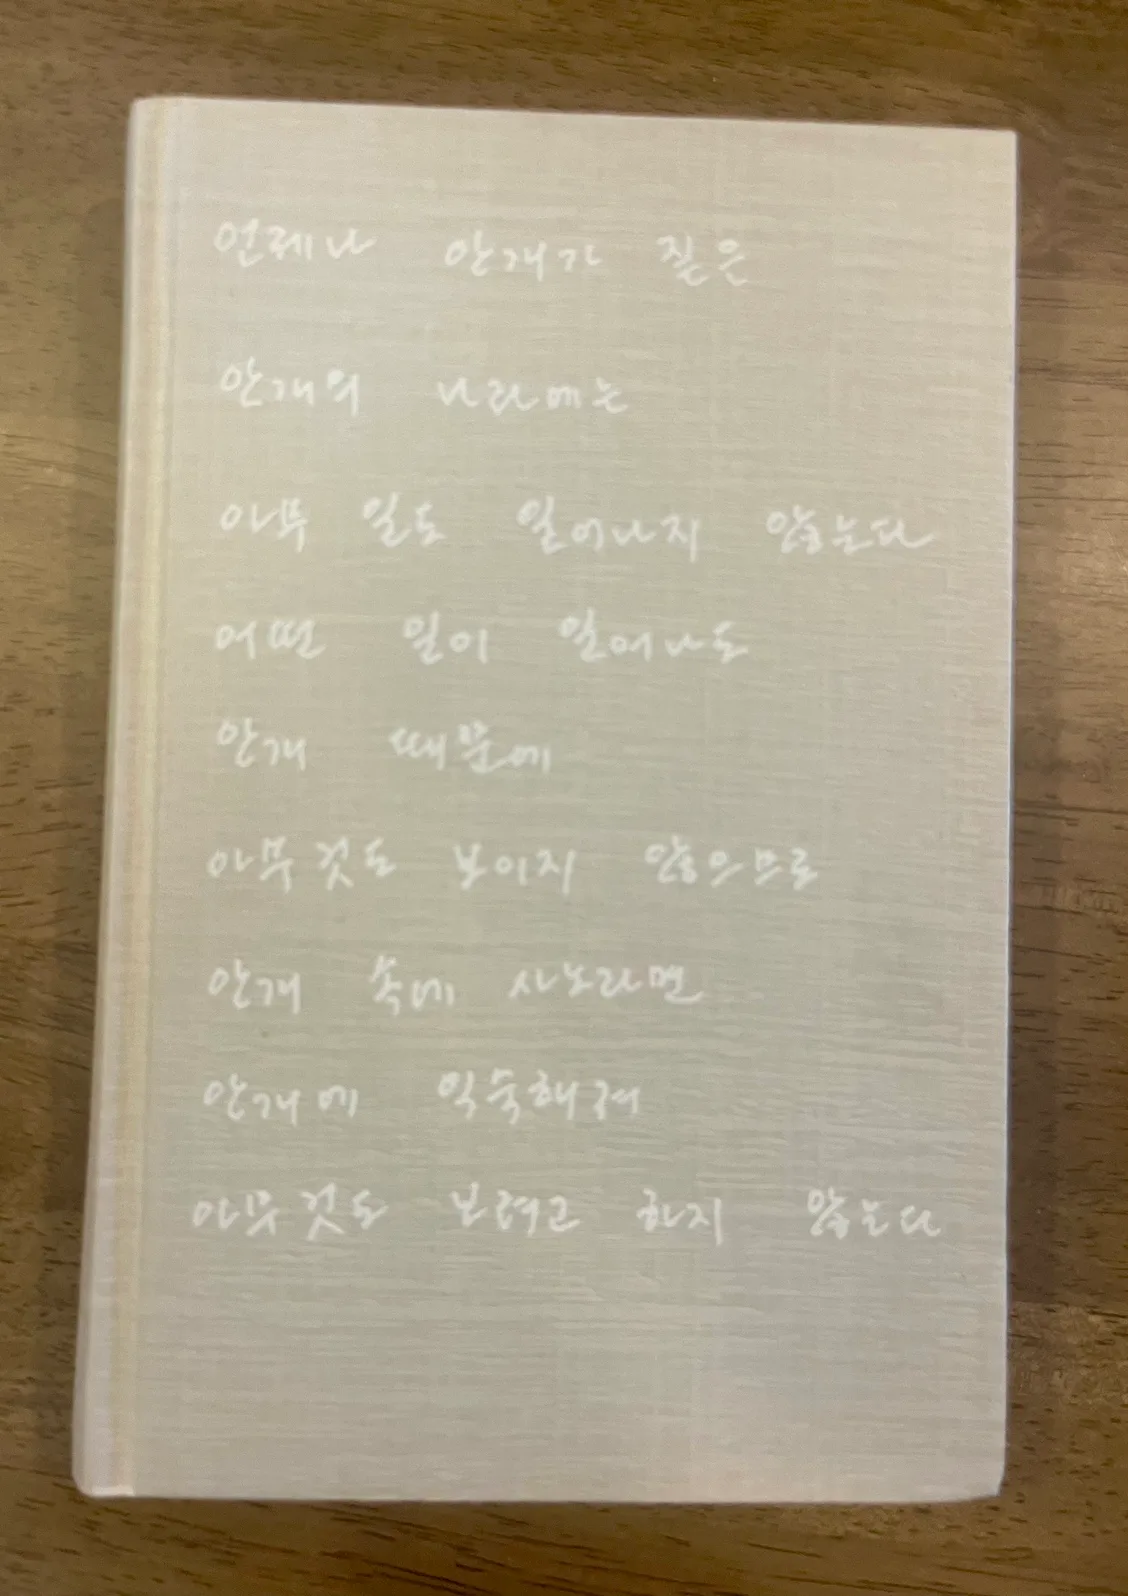 언제나 안개가 짙은
안개의 나라에는
아무 일도 일어나지 않는다
어떤 일이 일어나도
안개 때문에
아무것도 보이지 않으므로
안개 속에 사노라면
안개에 익숙해져
아무것도 보려고 하지 않는다